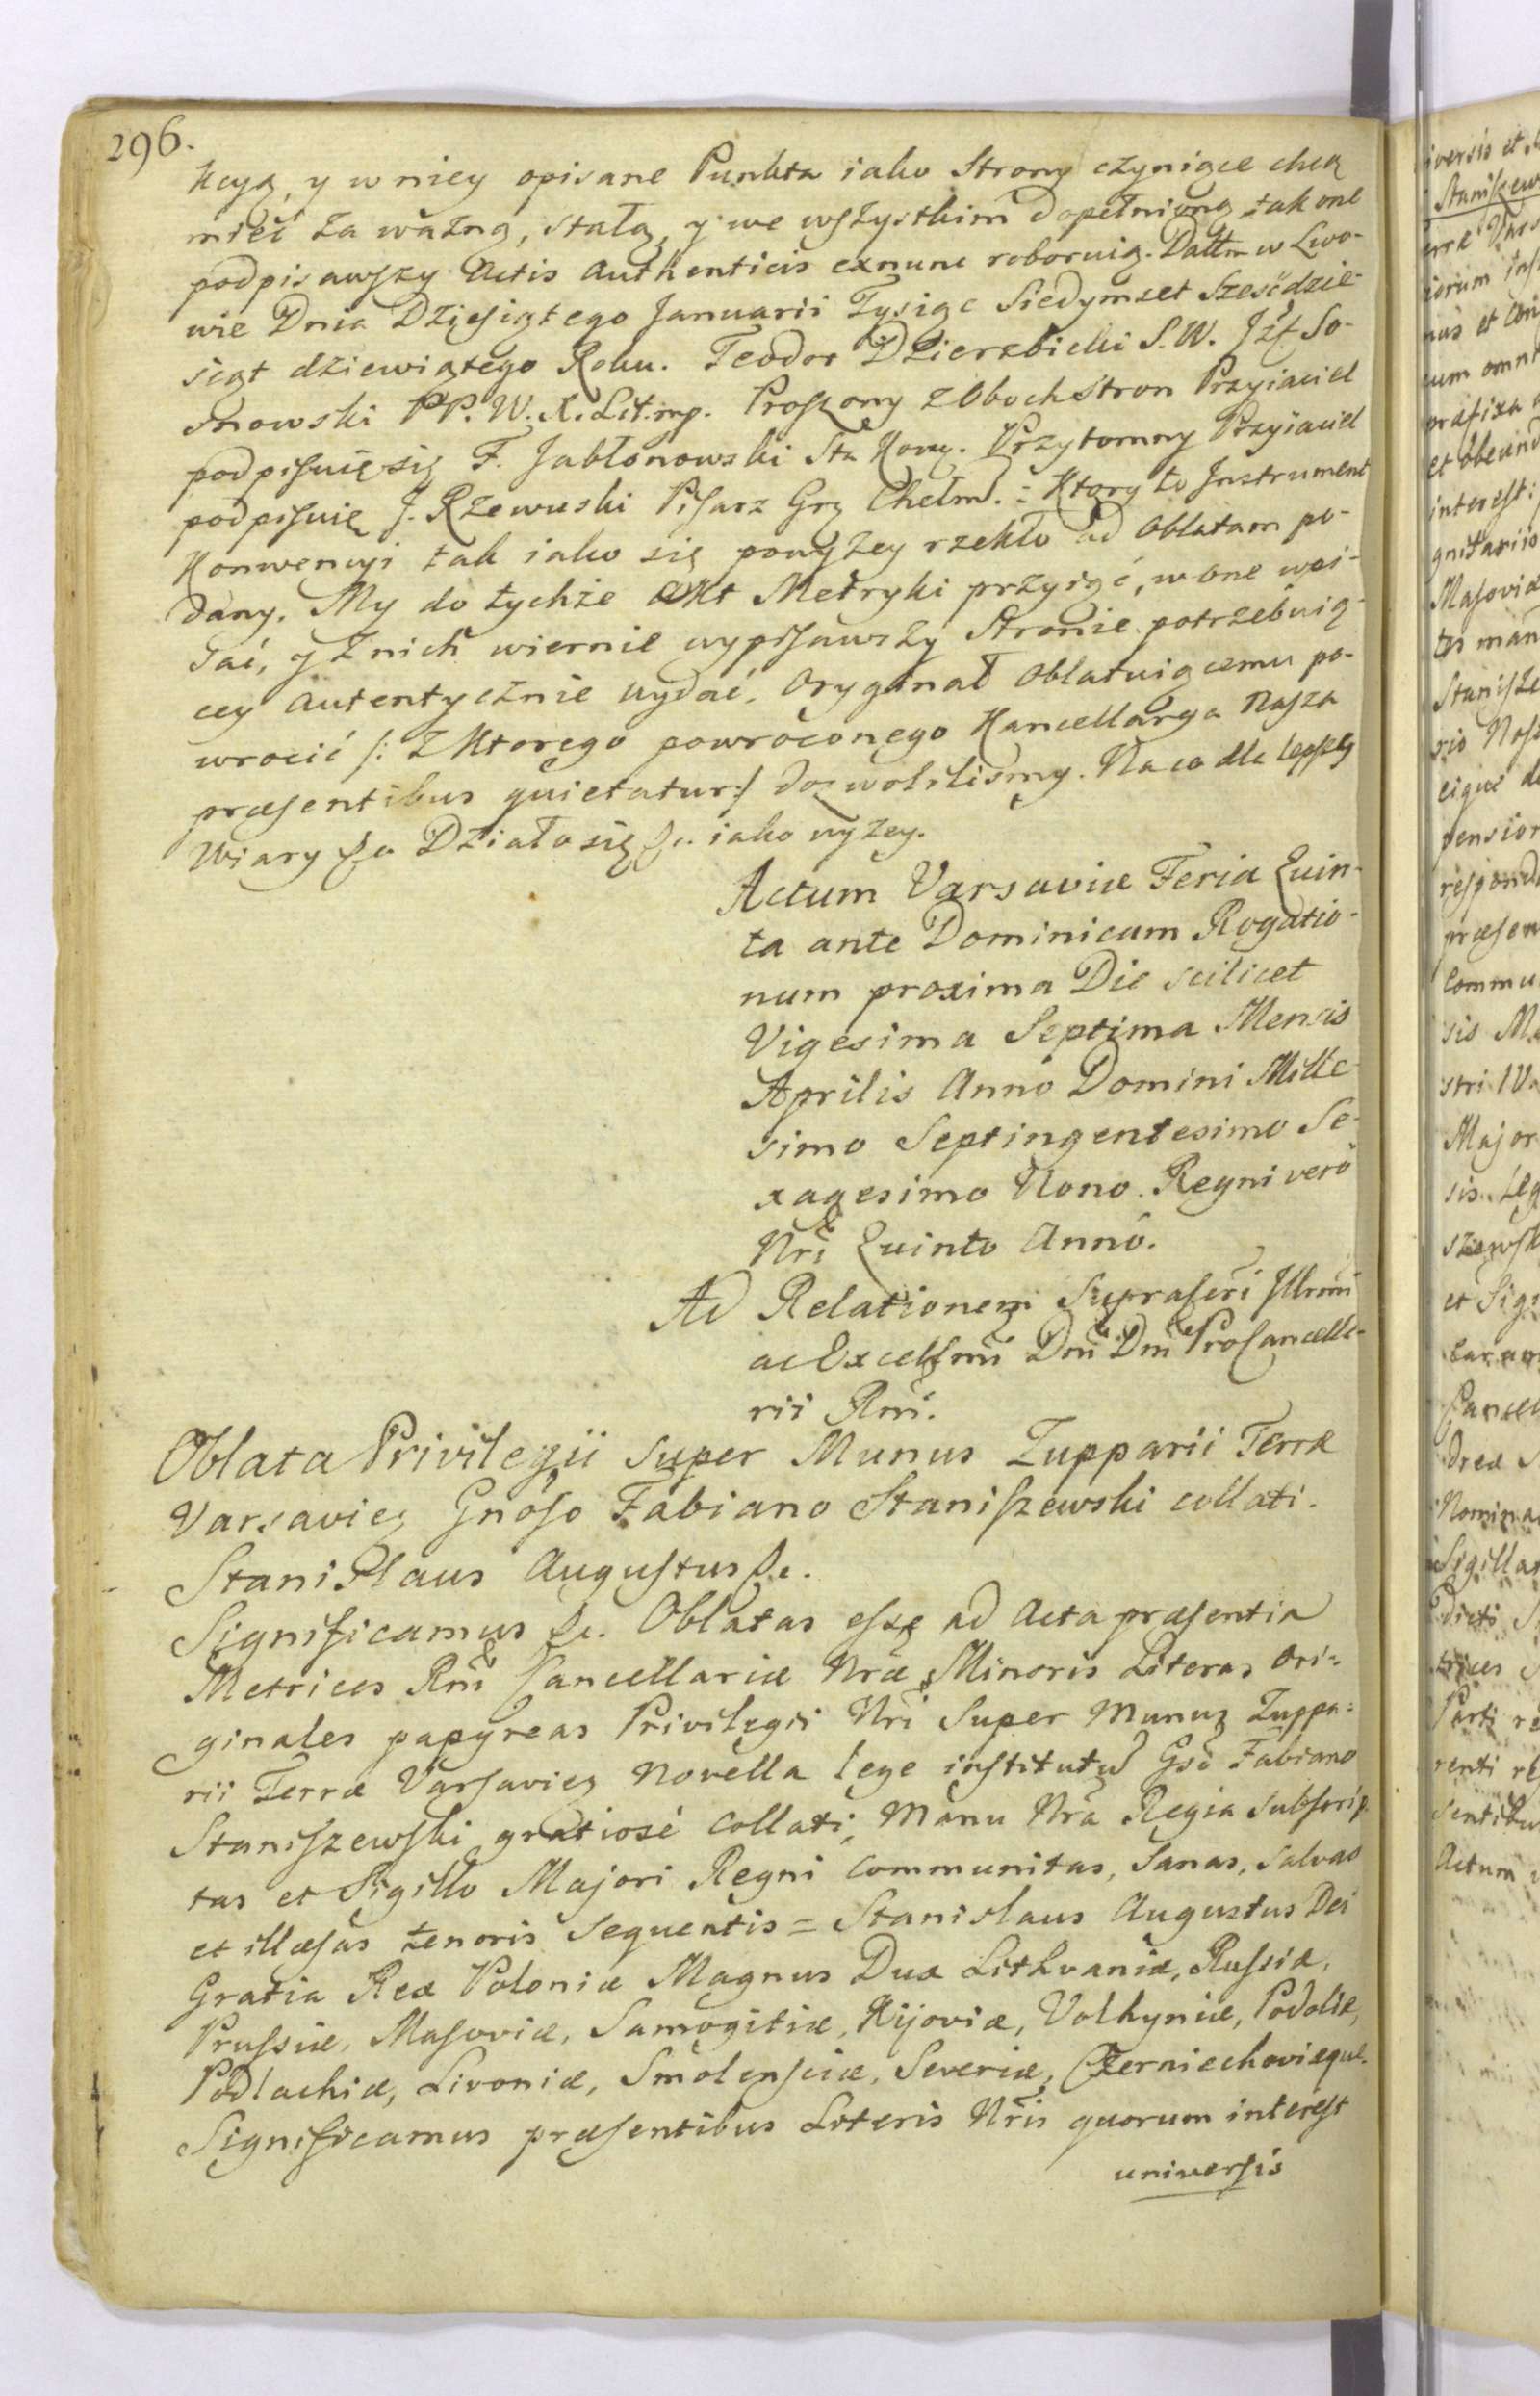 296.
kcyą, y w niey opisane Punkta iako Strony czyniące chcą
mieć za ważną, stałą, y we wszystkim dopełnioną, tak one
podpisawszy Actis Authenticis exnunc roboruią. Dattm w Lwo-
wie Dnia Dziesiątego Januarii Tysiąc Siedymset Sześćdzie-
siąt dziewiątego Roku. Teodor Dzierzbicki S.W. Józf So-
snowski PP. W. X. Lit. mp. Proszony z Oboch Stron Przyiaciel
podpisuię się F. Jabłonowski Sta Kowy. Przytomny Przyiaciel
podpisuię J. Rzewuski Pisarz Grz Chełm. = Ktory to Instrument
Konwencyi tak iako się powyżey rzekło ad Oblatam po-
dany. My do tychże Akt Metryki przyiąć, w one wpi-
sać, y z nich wiernie wypisawszy Stronie potrzebuią-
cey autentycznie wydać. Oryginał Oblatuiącemu po-
wrocić /: z Ktorego powroconego Kancellarya Nasza
præsentibus quietatur :/ dozwoliliśmy. Na co dla lepszey
Wiary &c Działo się &c. iako wyżey.
Actum Varsaviæ Feria Quin-
ta ante Dominicam Rogatio-
num proxima Die scilicet
Vigesima Septima Mensis
Aprilis Anno Domini Mille-
simo Septingentesimo Se-
xagesimo Nono. Regni verò
Nri Quinto Anno.
Ad Relationem Suprascri Illrmi
ac Excellsmi Dni Dni ProCancella-
rii Rni.
Oblata Privilegii super Munus Zupparii Terræ
Varsavieg Gnoso Fabiano Staniszewski collati.
Stanislaus Augustus &c.
Significamus &c. Oblatas esse ad Acta præsentia
Metrices Rni Cancellariæ Nræ Minoris Literas Ori-
ginales papyreas Privilegii Nri Super Munus Zuppa-
rii Terræ Varsavieg Novella lege institutu Gso Fabiano
Staniszewski gratiosè Collati, Manu Nra Regia subscrip-
tas et Sigillo Majori Regni Communitas, Sanas, Salvas
et illæsas tenoris sequentis = Stanislaus Augustus Dei
Gratia Rex Poloniæ Magnus Dux Lithvaniæ, Russiæ,
Prussiæ, Masoviæ, Samogitiæ, Kijoviæ, Volhyniæ, Podoliæ,
Podlachiæ, Livoniæ, Smolensciæ, Severiæ, Czerniechoviæque.
Significamus præsentibus Literis Nris quorum interest
universis